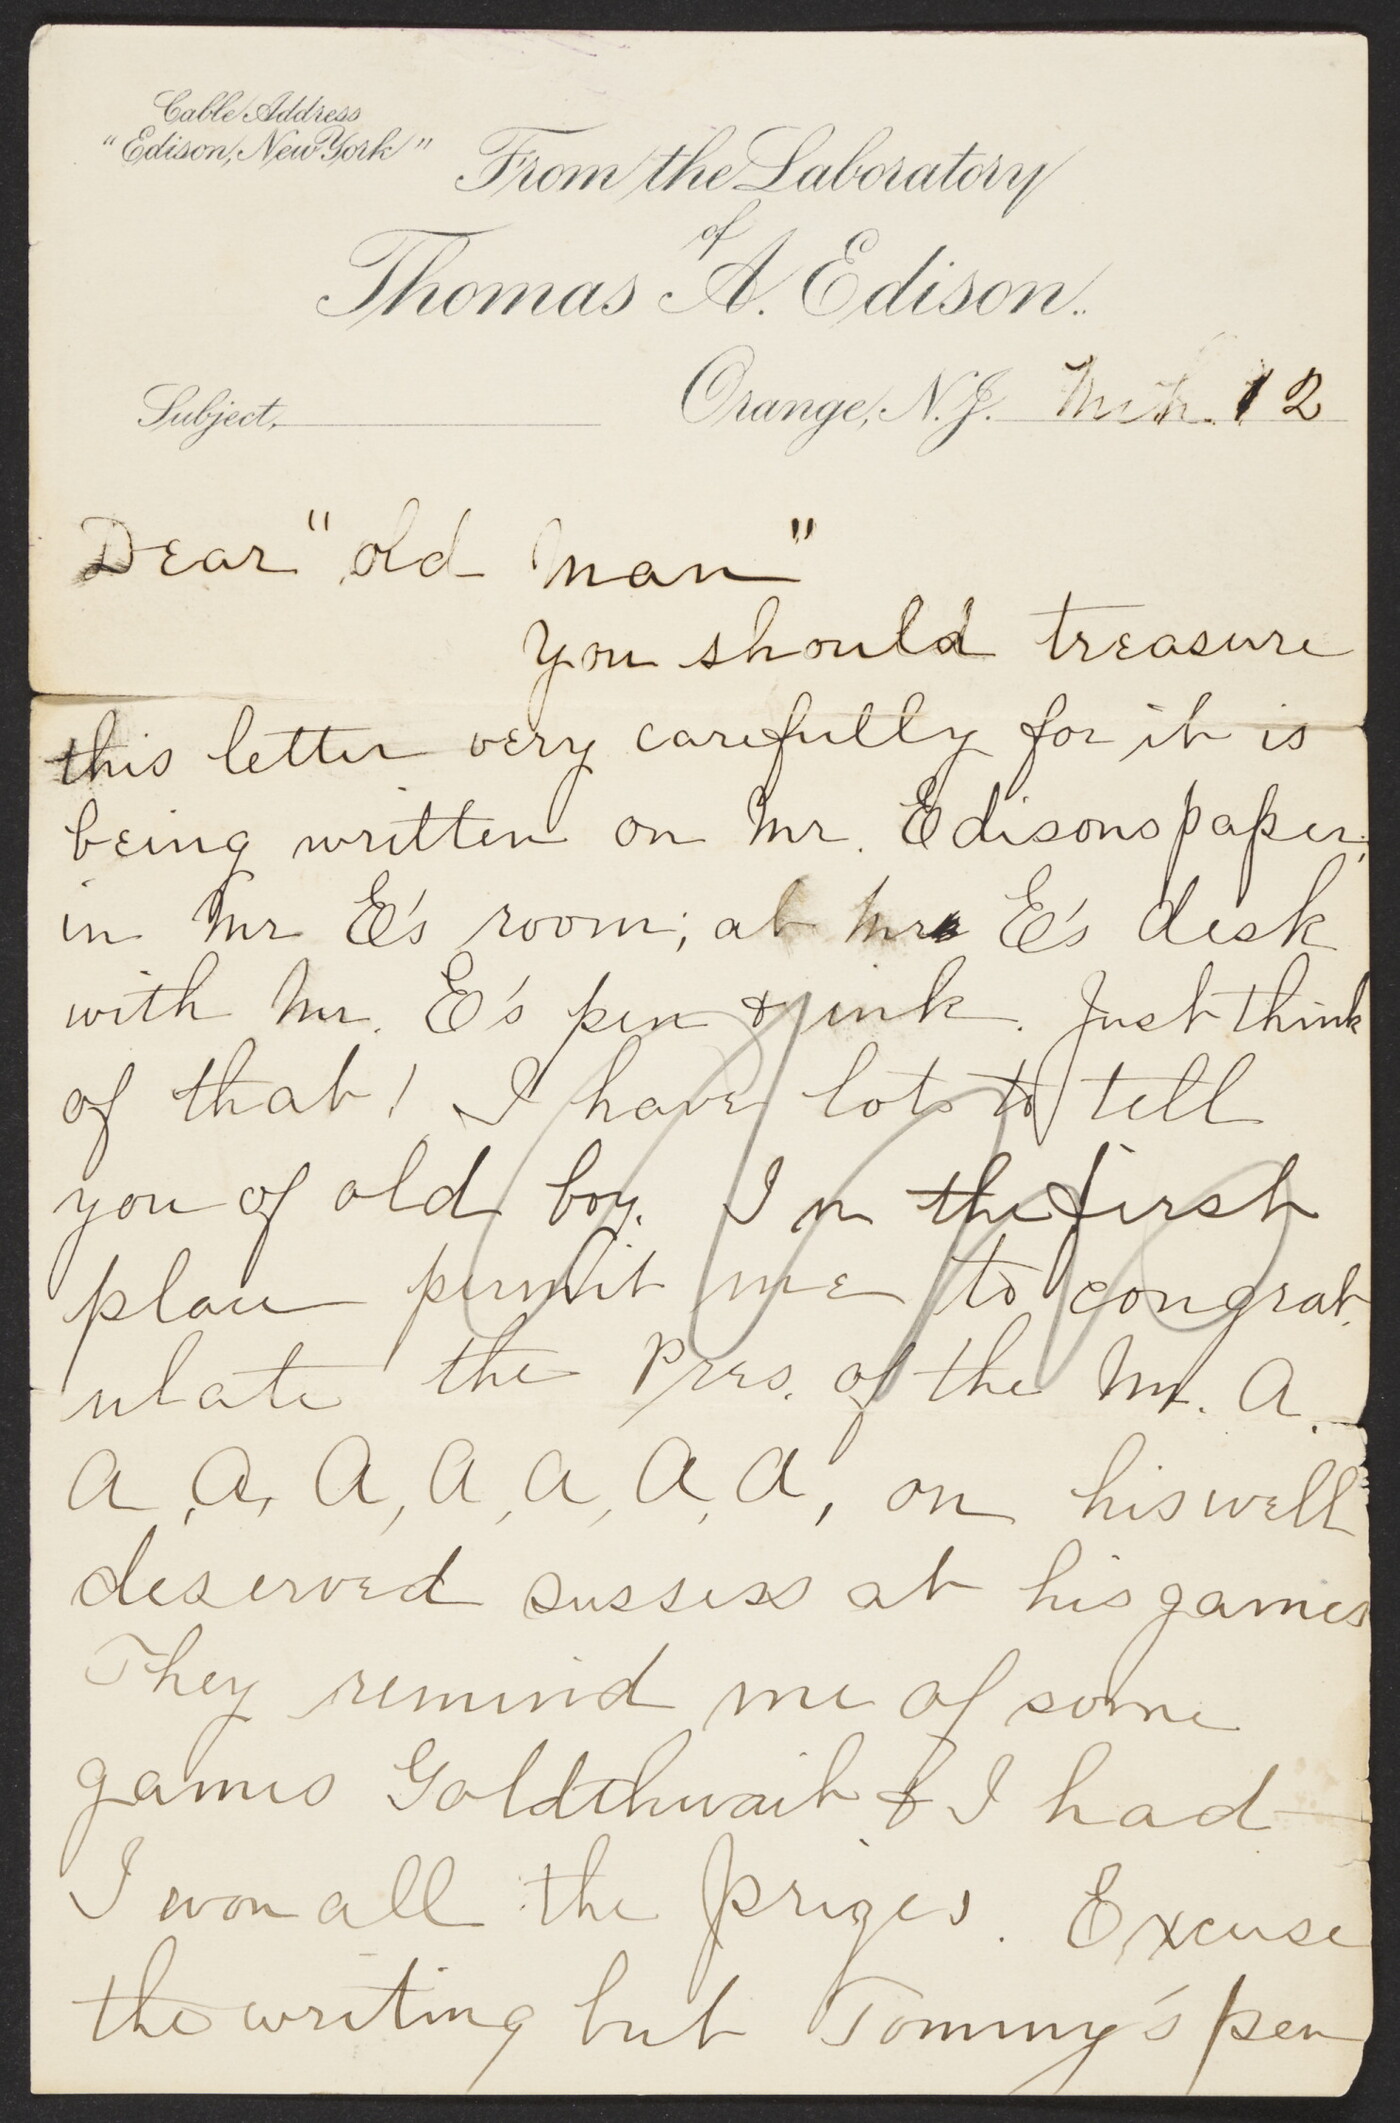 Cable Address
"Edison, New York"
From the Laboratory
of
Thomas A. Edison.
Subject,
Orange, N.J. Mch. 12
Dear "old man"
You should treasure
this letter very carefully for it is
being written on Mr. Edisons paper;
in Mr E's room; at Mr E's desk
with Mr. E's pen & ink. Just think
of that! I have lots to tell
you of old boy. In the first
place permit me to congrat.
ulate the Pres. of the M. A.
A, A, A, A, A, A, A, on his well
deserved sussess at his games
They remind me of some
games Goldthwait & I had
I won all the prizes. Excuse
the writing but Tommy's pen